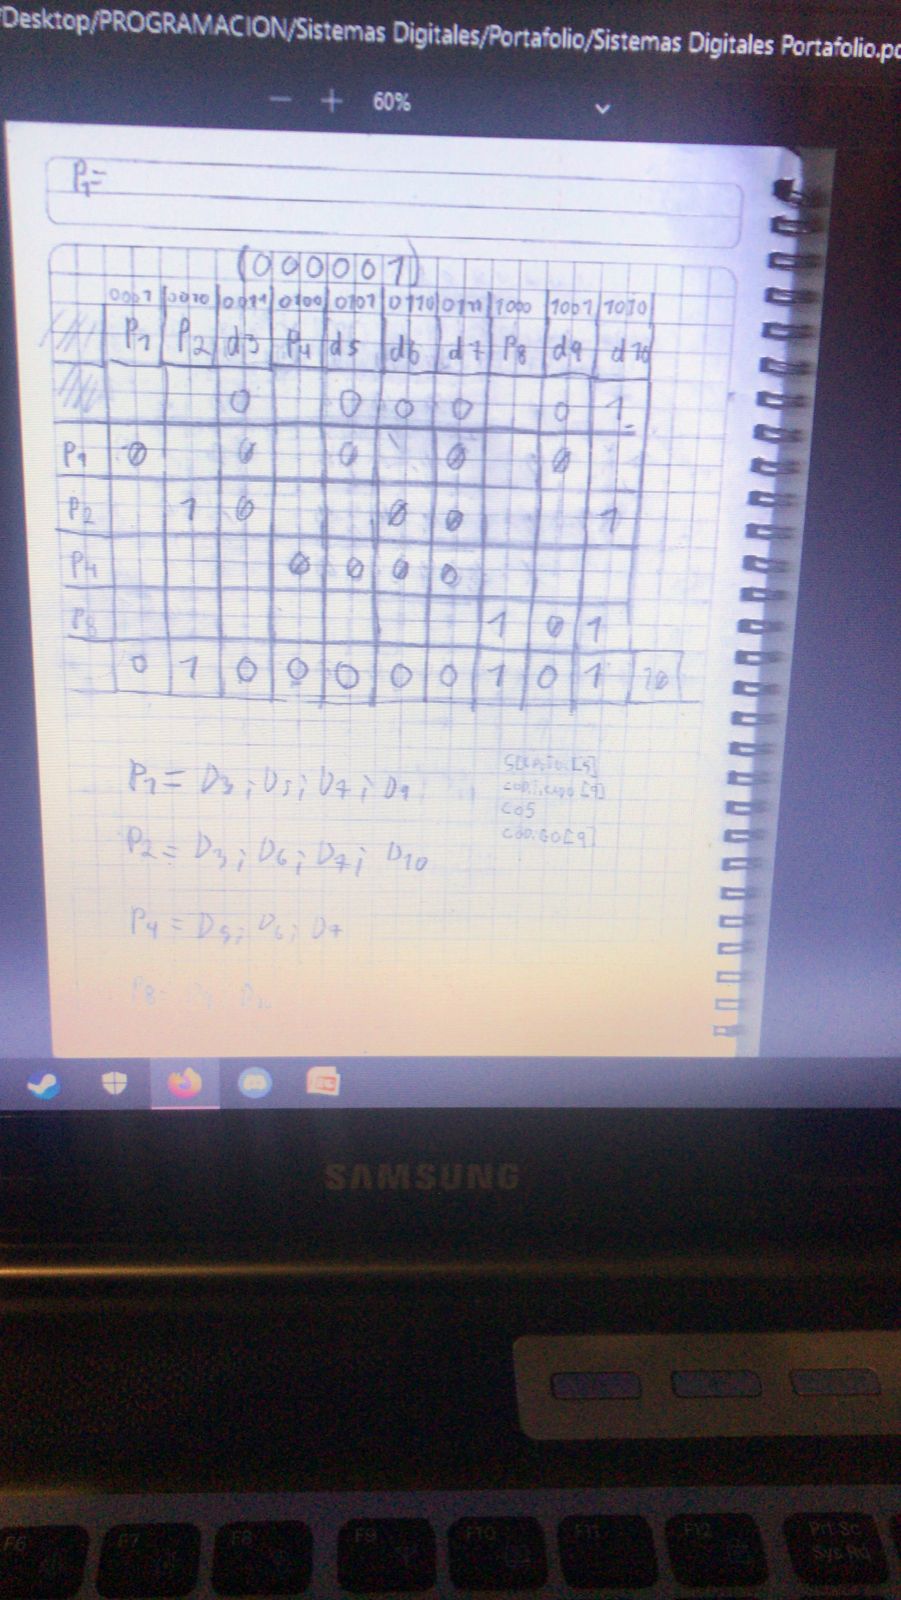 Desktop/PROGRAMACION/Sistemas Digitales/Portafolio/Sistemas Digitales Portafolio.pd
60%
P1=
(000001)
0001 0010 0011 0100 0101 0110 0111 1000 1001 1010
P1 P2 d3 P4 d5 d6 d7 P8 d9 d10
0 0 0 0 0 1
P1 0 0 0 0 0
P2 1 0 0 0 1
P4 0 0 0 0
P8 1 0 1
0 1 0 0 0 0 0 1 0 1 10
P1 = D3; D5; D7; D9
P2 = D3; D6; D7; D10
P4 = D5; D6; D7
P8=
CO5
CODIGO[9]
SAMSUNG
F6 F7 F8 F9 F10 F11 F12 Prt Sc
Sys Rq